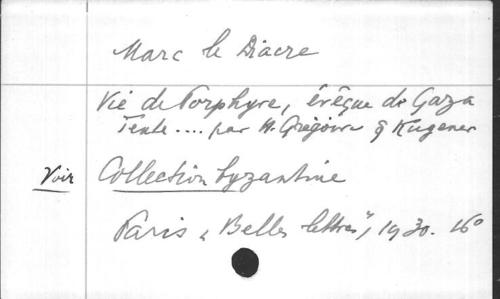 Marc le Diacre
Vie de Porphyre, évêque de Gaza
Texte .... par H. Grégoire & Kugener
Voir Collection byzantine
Paris "Belles lettres", 1930. 16°